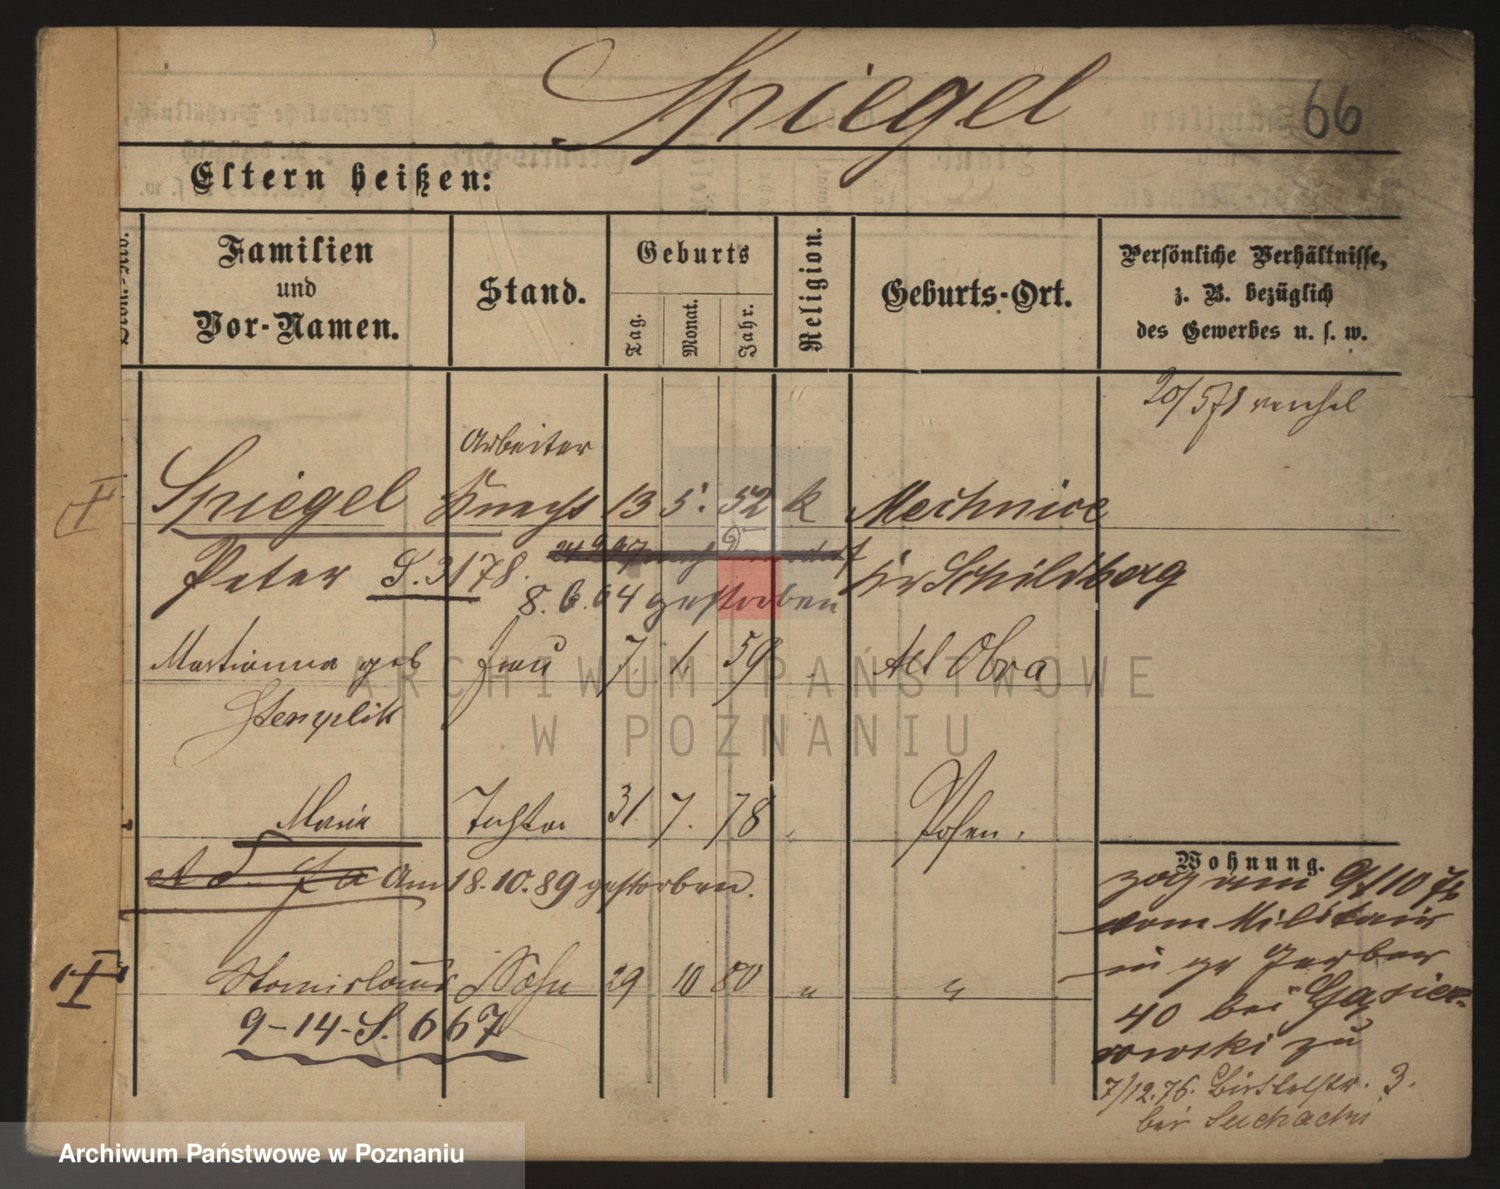 Spiegel
66
Eltern heißen:
Familien
und
Vor-Namen.
Stand.
Geburts
Tag.
Monat.
Jahr.
Religion.
Geburts-Ort.
Persönliche Verhältnisse,
z. B. bezüglich
des Gewerbes u. s. w.
Arbeiter
I Spiegel 13 5. 52 k Mechnice
Peter S. 3178.
8. 6. 04 gestorben Schildberg
Marianna geb Frau 7. 1. 59 Alt Obra
Stemplik
Maria Tochter 31. 7. 78 " Posen.
Am 18. 10. 89 gestorben.
Stanislaus Sohn 29 10 80 " "
9-14-S. 667
Wohnung.
zog am 9/10 76
vom Militair
in gr Gerber
40 bei Gasier-
owski zu
7/12. 76. 3.
bei
ARCHIWUM PAŃSTWOWE
W POZNANIU
Archiwum Państwowe w Poznaniu